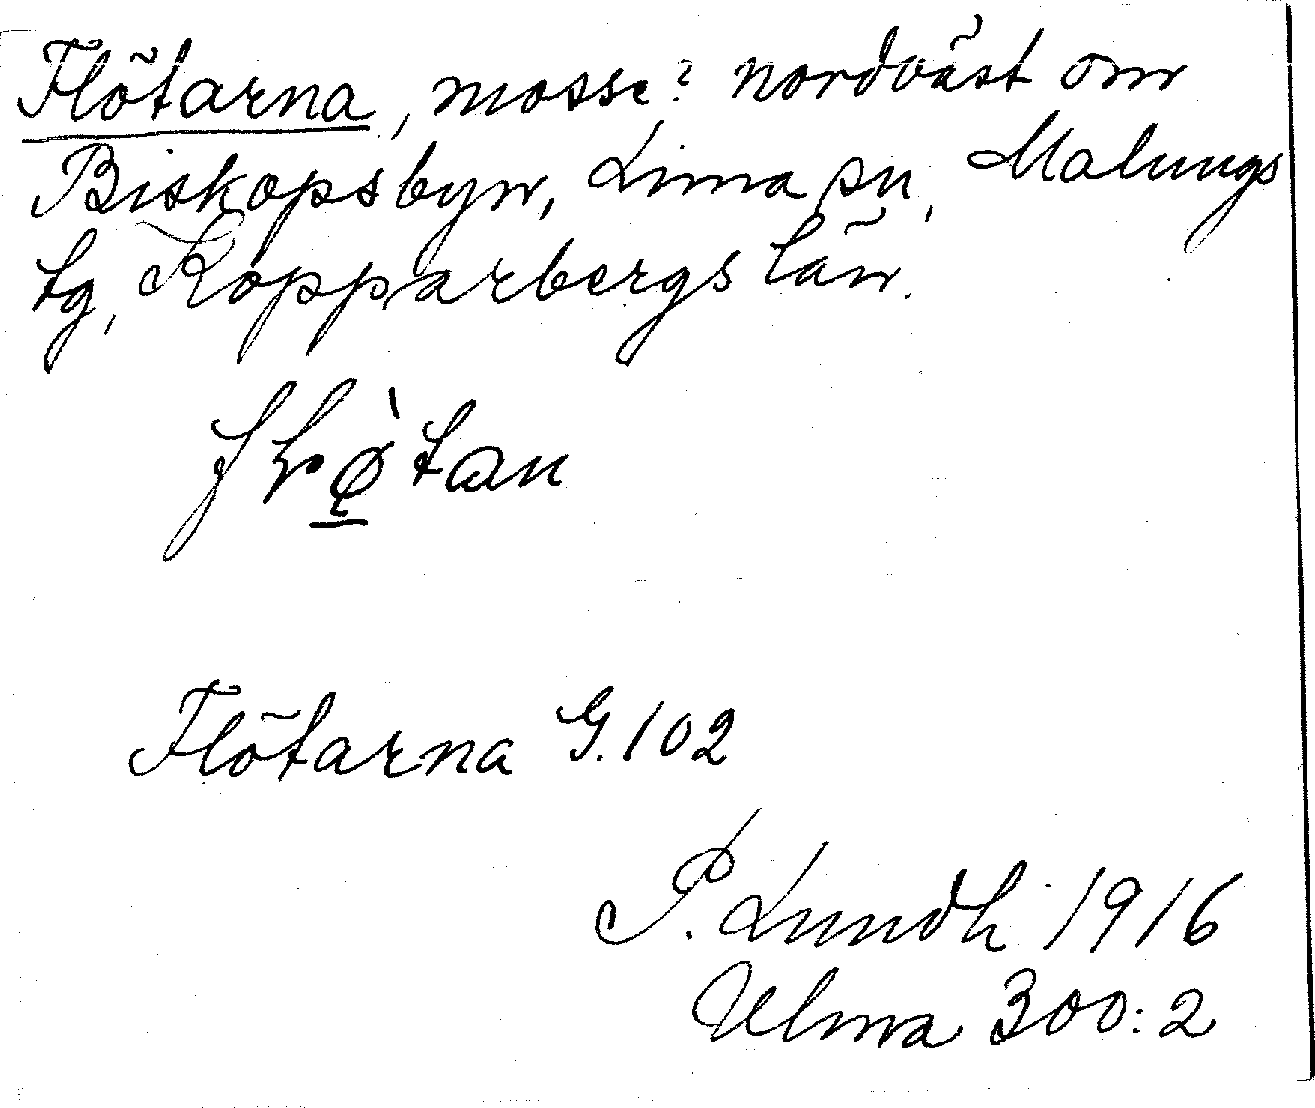 Flötarna, mosse? nordväst om
Biskopsbyn, Lima sn, Malungs
tg, Kopparbergs län.
Flötarna G.102
P. Lundh 1916
Ulma 300:2